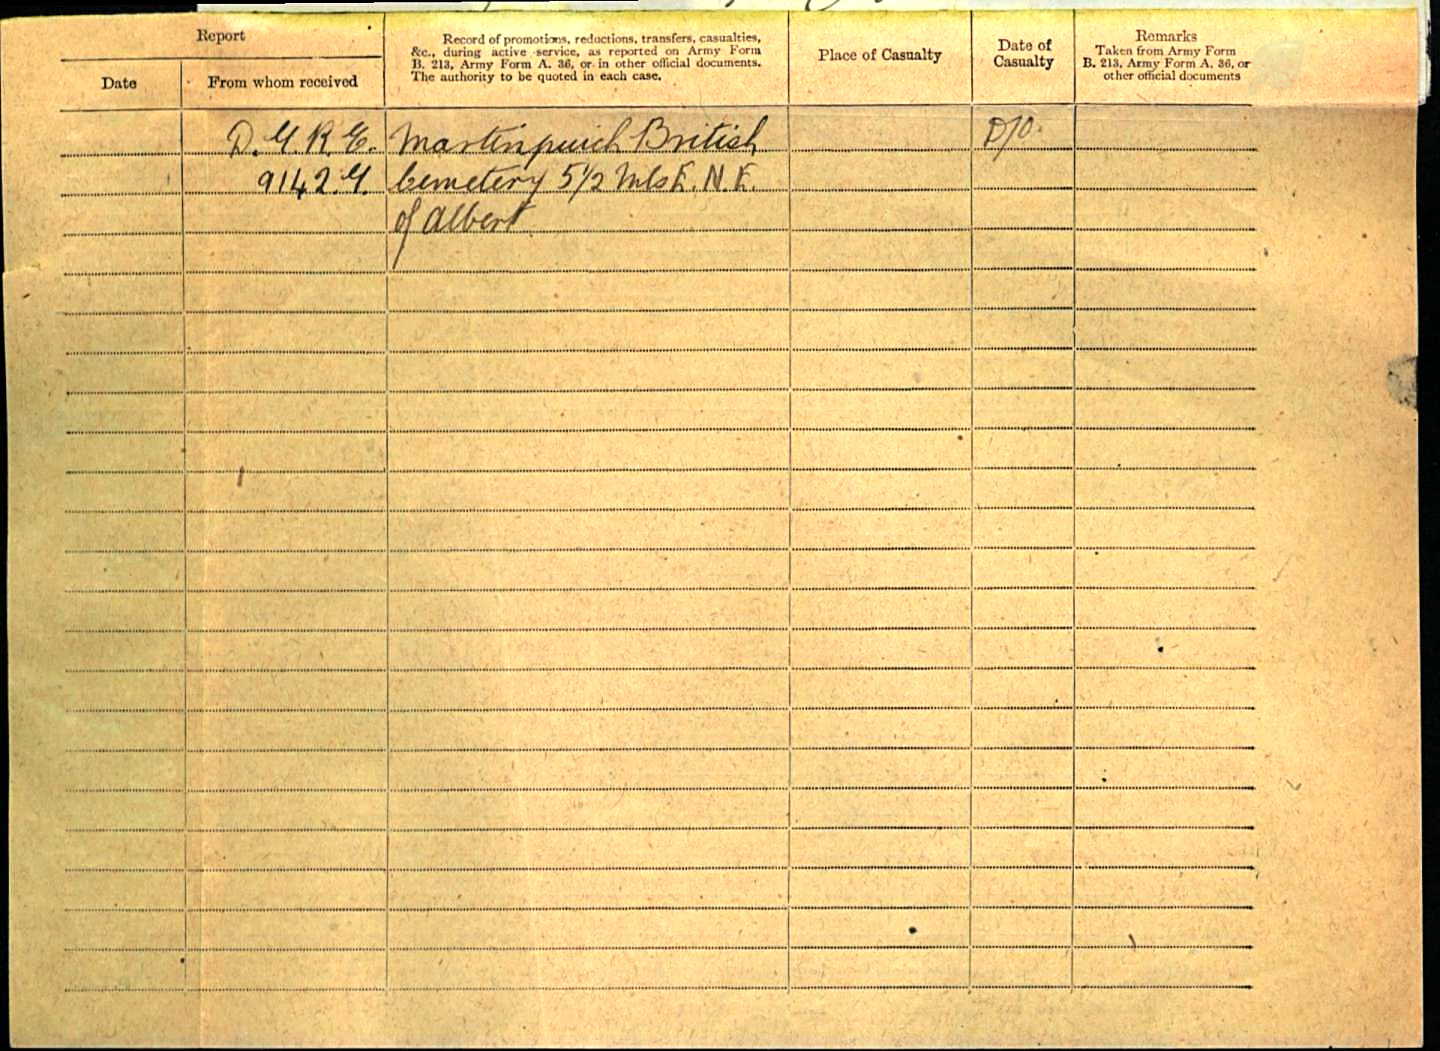 Report
Date
From whom received
Record of promotions, reductions, transfers, casualties,
&c., during active service, as reported on Army Form
B. 213, Army Form A. 36, or in other official documents.
The authority to be quoted in each case.
Place of Casualty
Date of
Casualty
Remarks
Taken from Army Form
B. 213, Army Form A. 36, or
other official documents
D.G.R.E. Martinpuich British D/O.
9142.G. Cemetery 5½ Mls E.N.E.
of Albert